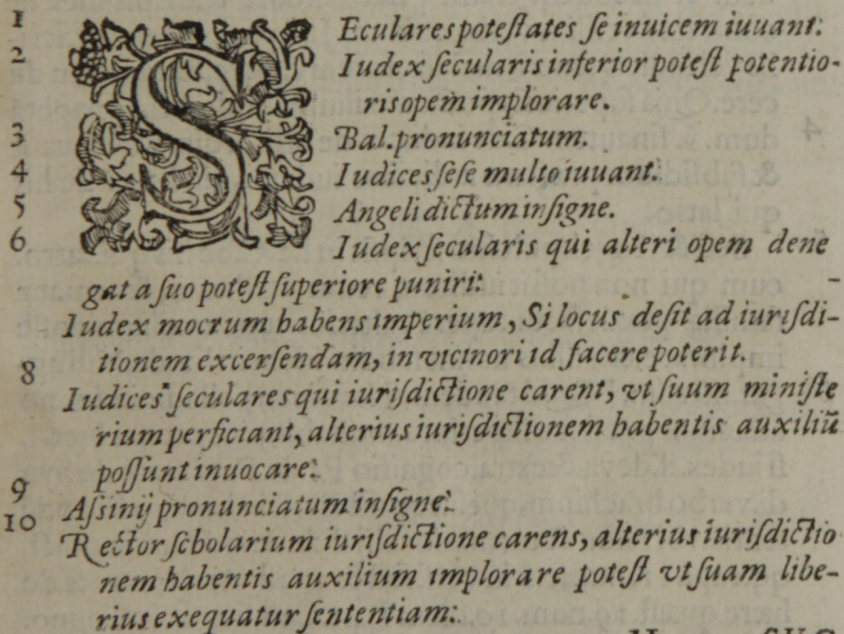 1 SEculares potestates se inuicem iuuant.
2 Iudex secularis inferior potest potentio-
ris opem implorare.
3 Bal. pronunciatum.
4 Iudices sese multo iuuant.
5 Angeli dictum insigne.
6 Iudex secularis qui alteri opem dene
gat a suo potest superiore puniri. -
Iudex mocrum habens imperium, Si locus desit ad iurisdi-
tionem excersendam, in vicinori id facere poterit.
8 Iudices seculares qui iurisdictione carent, vt suum ministe
rium perficiant, alterius iurisdictionem habentis auxiliū
possunt inuocare.
9 Assinij pronunciatum insigne.
10 Rector scholarium iurisdictione carens, alterius iurisdictio
nem habentis auxilium implorare potest vt suam libe-
rius exequatur sententiam.